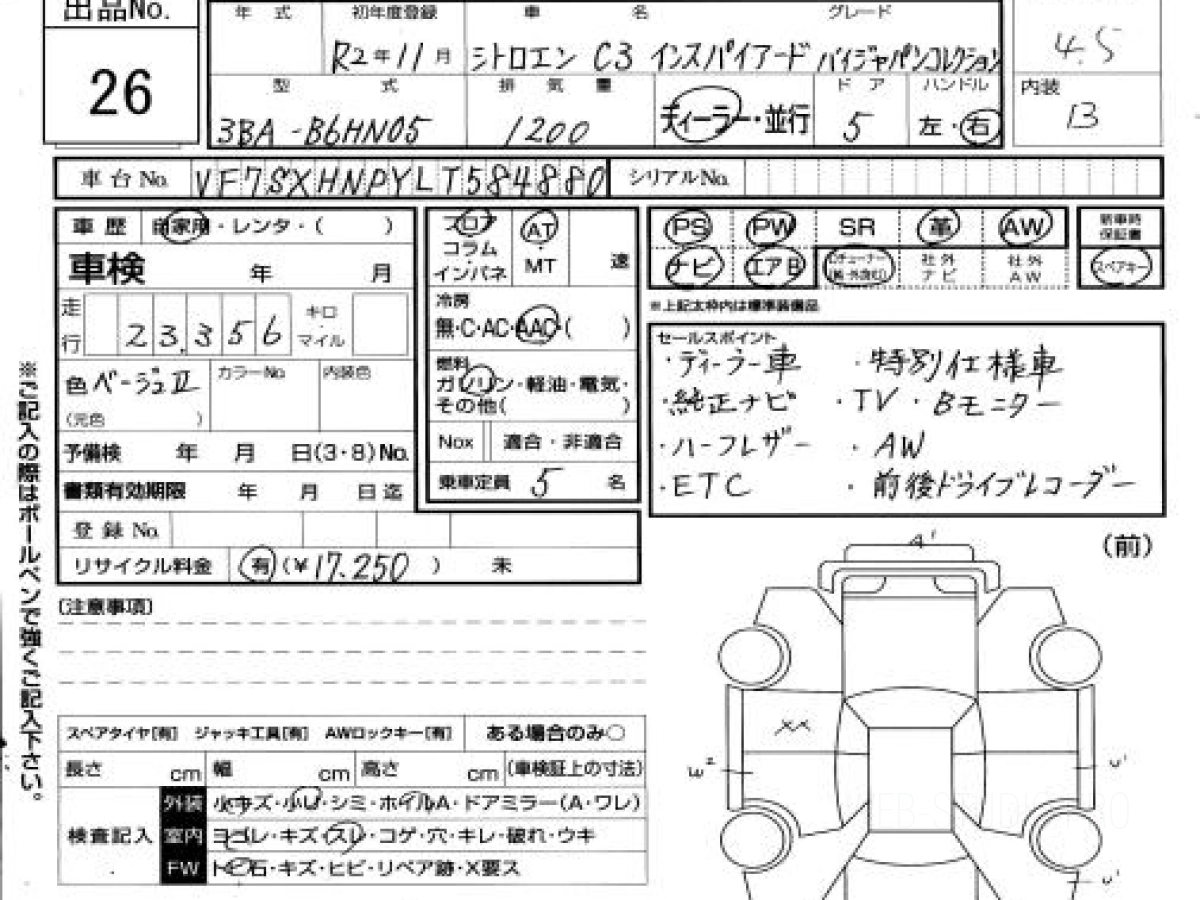 出品No.
26
年式 初年度登録 車名 グレード
R2年11月 シトロエン C3 インスパイアード バイジャパンコレクション
型式 排気量 ディーラー・並行 ドア ハンドル
3BA-B6HN05 1200 5 左・右
4.5
内装
B
車台No. VF7SXHNPYLT584880 シリアルNo.
車歴 自家用・レンタ・( )
車検 年 月
走行 23,356 キロ・マイル
色 ベージュⅡ カラーNo. 内装色
(元色 )
予備検 年 月 日(3・8)No.
書類有効期限 年 月 日迄
登録No.
リサイクル料金 有(¥17.250 ) 未
フロア
コラム
インパネ
AT
MT
速
冷房
無・C・AC・AAC・( )
燃料
ガソリン・軽油・電気・
その他( )
Nox 適合・非適合
乗車定員 5 名
PS PW SR 革 AW
新車時保証書
ナビ エアB
社外ナビ 社外AW
スペアキー
※上記太枠内は標準装備品
セールスポイント
・ディーラー車 ・特別仕様車
・純正ナビ ・TV・Bモニター
・ハーフレザー ・AW
・ETC ・前後ドライブレコーダー
※ご記入の際はボールペンで強くご記入下さい。
(注意事項)
スペアタイヤ[有] ジャッキ工具[有] AWロックキー[有] ある場合のみ○
長さ cm 幅 cm 高さ cm (車検証上の寸法)
検査記入
外装 小キズ・小U・シミ・ホイルA・ドアミラー(A・ワレ)
室内 ヨゴレ・キズ・スレ・コゲ・穴・キレ・破れ・ウキ
FW トビ石・キズ・ヒビ・リペア跡・X要ス
(前)
A'
XX
U'
U'